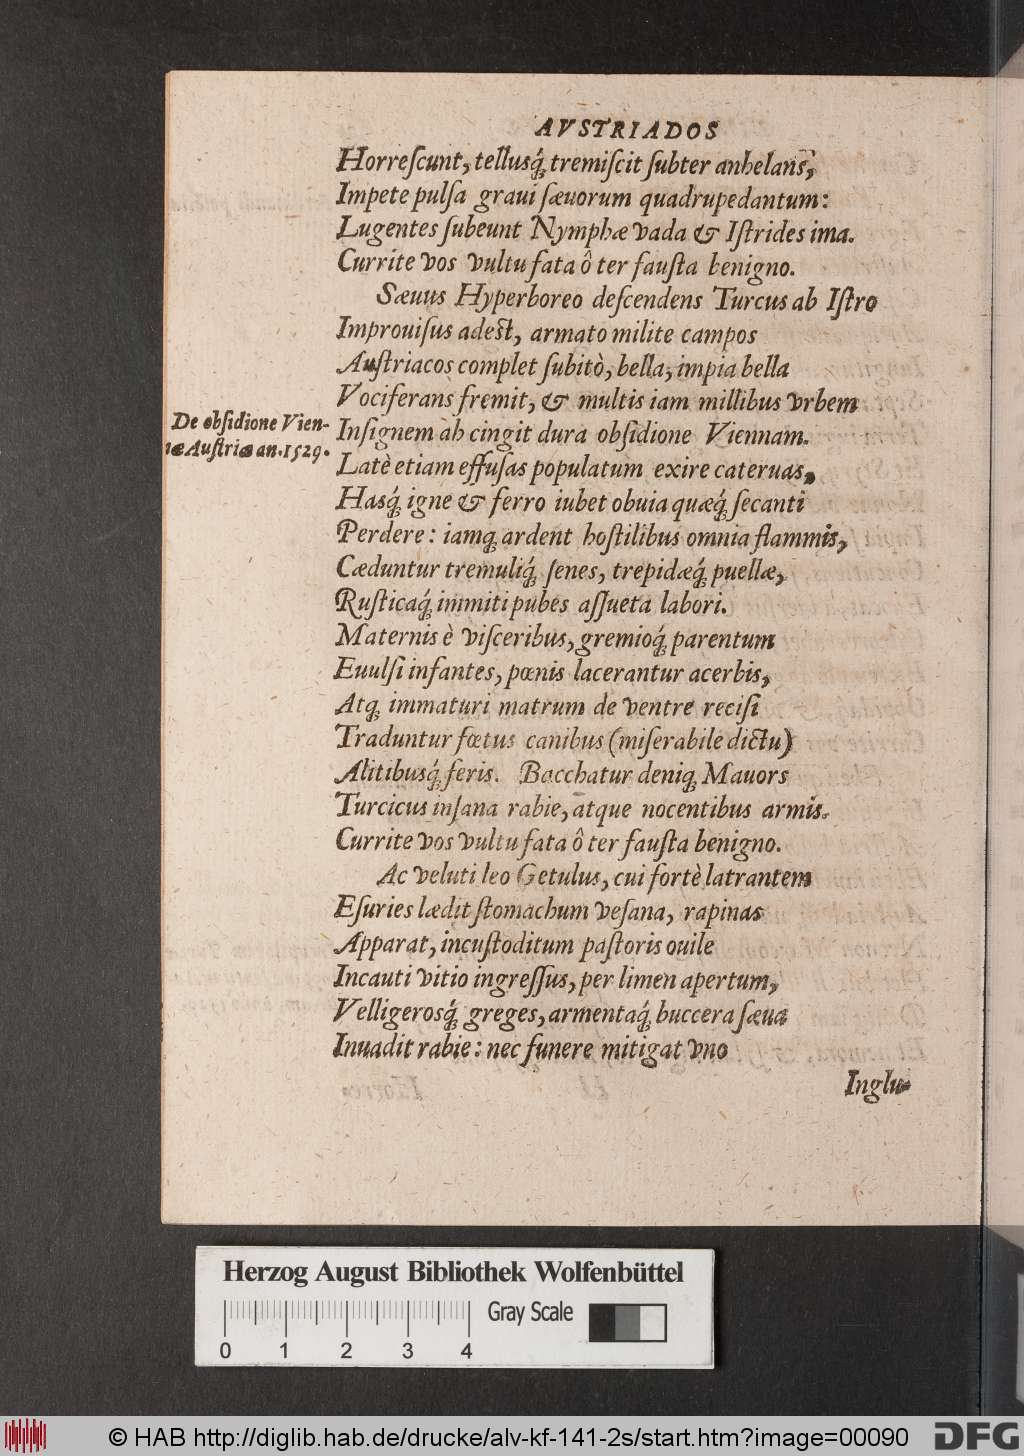 AVSTRIADOS
Horreſcunt, tellusq́; tremiſcit ſubter anhelans,
Impete pulſa graui ſæuorum quadrupedantum:
Lugentes ſubeunt Nymphæ vada & Iſtrides ima.
Currite vos vultu fata ô ter fauſta benigno.
Sæuus Hyperboreo deſcendens Turcus ab Iſtro
Improuiſus adest, armato milite campos
Auſtriacos complet ſubitò, bella, impia bella
Vociferans fremit, & multis iam millibus vrbem
De obſidione Vien-
næ Auſtriæ an. 1529.
Inſignem ab cingit dura obſidione Viennam.
Latè etiam effuſas populatum exire cateruas,
Hasq́; igne & ferro iubet obuia quæq́; ſecanti
Perdere: iamq; ardent hoſtilibus omnia flammis,
Cæduntur tremuliq́; ſenes, trepidæq́; puellæ,
Ruſticaq́; immiti pubes aſſueta labori.
Maternis è viſceribus, gremioq́; parentum
Euulſi infantes, pœnis lacerantur acerbis,
Atq; immaturi matrum de ventre reciſi
Traduntur fœtus canibus (miſerabile dictu)
Alitibusq́; feris. Bacchatur deniq; Mauors
Turcicus inſana rabie, atque nocentibus armis.
Currite vos vultu fata ô ter fauſta benigno.
Ac veluti leo Getulus, cui fortè latrantem
Eſuries lædit ſtomachum veſana, rapinas
Apparat, incuſtoditum paſtoris ouile
Incauti vitio ingreſſus, per limen apertum,
Velligerosq́; greges, armentaq́; buccera ſæua
Inuadit rabie: nec funere mitigat vno
Inglu-
Herzog August Bibliothek Wolfenbüttel
Gray Scale
0 1 2 3 4
© HAB http://diglib.hab.de/drucke/alv-kf-141-2s/start.htm?image=00090
DFG